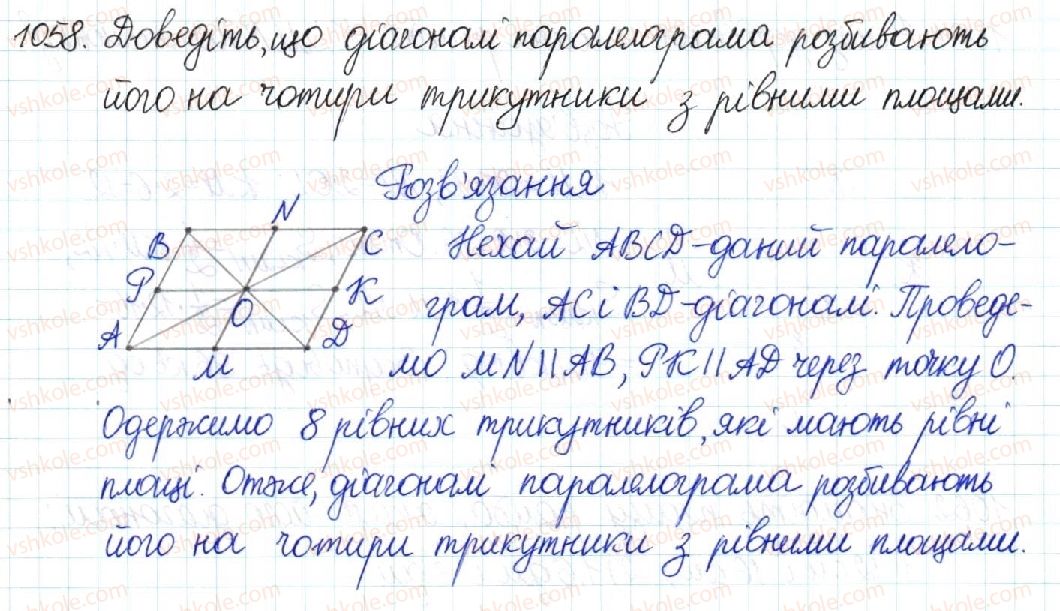 1058. Доведіть, що діагоналі паралелограма розбивають
його на чотири трикутники з рівними площами.
Розв'язання
B N C
P O K
A M D
Нехай ABCD-даний паралело-
грам, AC і BD-діагоналі. Проведе-
мо MN||AB, PK||AD через точку O.
Одержимо 8 рівних трикутників, які мають рівні
площі. Отже, діагоналі паралелограма розбивають
його на чотири трикутники з рівними площами.